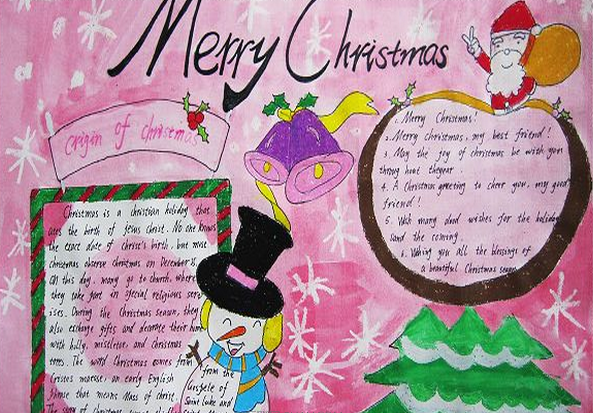 Merry Christmas
Origin of Christmas
Christmas is a christian holiday that
the birth of jesus christ. No one knows
the exact date of christ's birth, but most
christmas observe Christmas on December 25.
On this day, many go to church, where
they take part in special religious serv
ises. During the Christmas season, they
also exchange gifts and decorate their home
with holly, misseltoe, and Christmas
trees. The word Christmas comes from
Cristes maesse, an early English
Phrase that means Mass of christ.
The story of Christmas
from the
Gospels of
Saint Luke and
1. Merry Christmas!
2. Merry christmas, my best friend!
3. May the joy of christmas be with you
throng hout theyear.
4. A Christmas greeting to cheer you, my good
friend!
5. With many good wishes for the holiday
and the coming.
6. Wishing you all the blessings of
a beautiful Christmas season.